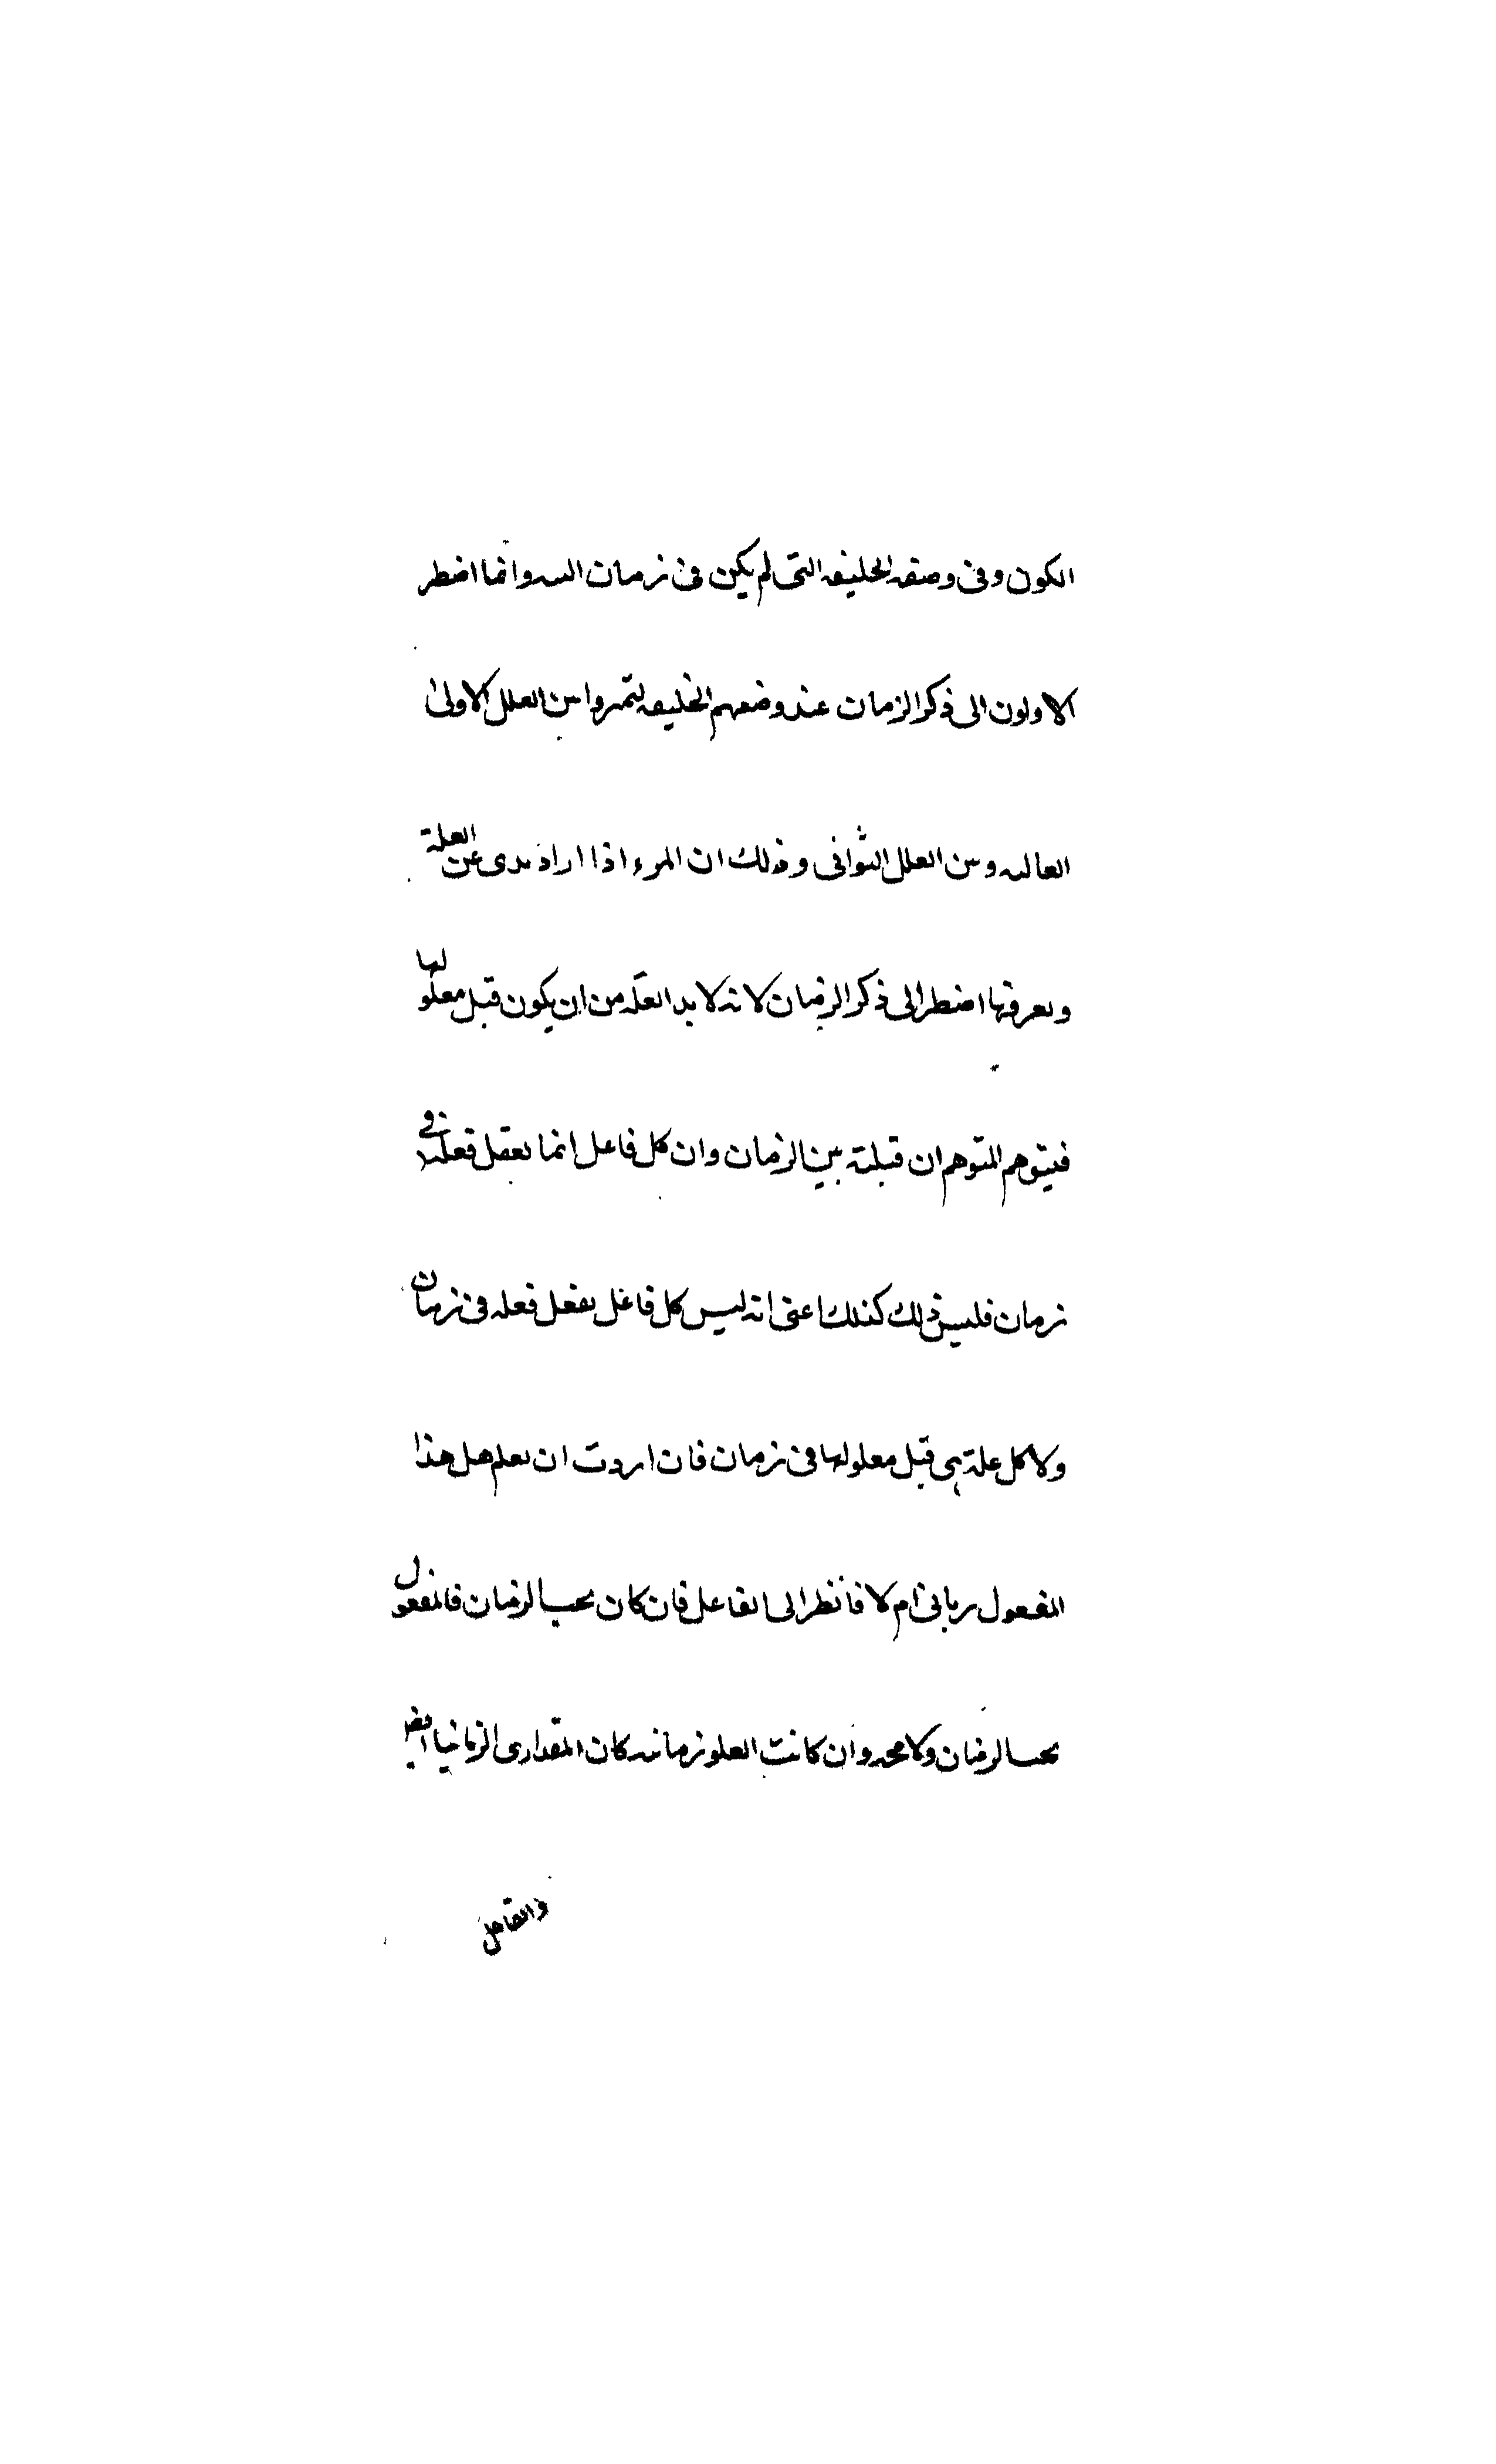 الكون وفى وصفه الخليفه التى لم يكن فى زمان البته وانما اضطر
الاولون الى ذكر الزمان عند وضعهم الخليفه لتميزوا بين العلل الاولى
العاليه وبين العلل الثوانى وذلك ان المرء اذا اراد يدى عن العلة
ويعرفها اضطر الى ذكر الزمان لانه لا بد العله من ان يكون قبل معلولها
فيتوهم المتوهم ان قبلته بين الزمان وان كل فاعل انما يعقل فعله فى
زمان فليس ذلك كذلك اعنى انه ليس كل فاعل يفعل فعله فى زمان
ولا كل علة هى قبل معلولها فى زمان فان اردت ان يعلم هل هذا
المفعول ربانى ام لا فانظر الى الفاعل فان كان بحب الزمان فالمفعول
بحب الزمان ولا محه وان كانت العلو زمانيه كان المقدارى الزمانيا ايضا
والفاعل